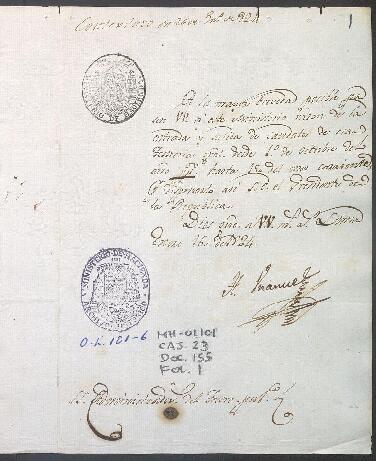 Contestado en 26 de En.º de 824
1
A la mayor brevedad posible pa-
san VV. á este Ministerio razon de la
entrada y salida de caudales de esa
Tesoreria gral. desde 1.º de octubre del
año hasta 15 del mes corriente,
S.E. el Presidente de
la República.
Dios gue. á VV. m.s a.s
Enero 16 de 1824
MINISTERIO DE HACIENDA
O.L. 101-6
MH-01101
CAJ. 23
Doc. 155
Fol. 1
S.S. Administrad.s del Tesoro pub.co